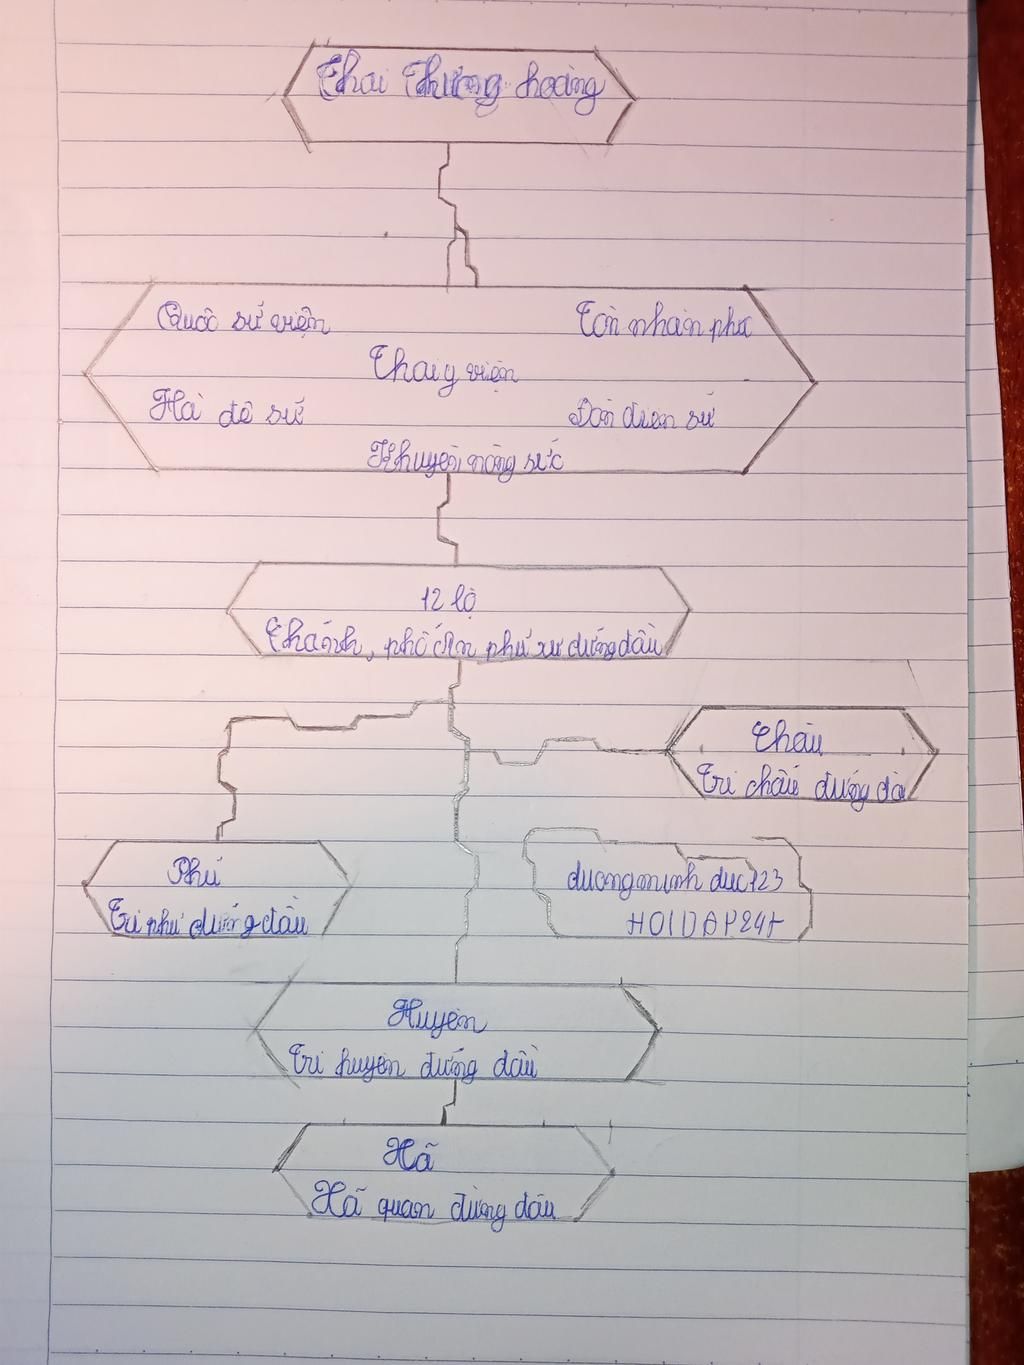 Thái Thượng hoàng
Quốc sử viện
Tôn nhân phủ
Thái y viện
Hà đê sứ
Đồn điền sứ
Khuyến nông sứ
12 lộ
Chánh, phó An phủ sứ đứng đầu
Châu
Tri châu đứng đầ
Phủ
Tri phủ đứng đầu
duongminh duc123
HOIDAP247
Huyện
Tri huyện đứng đầu
Xã
Xã quan đứng đầu